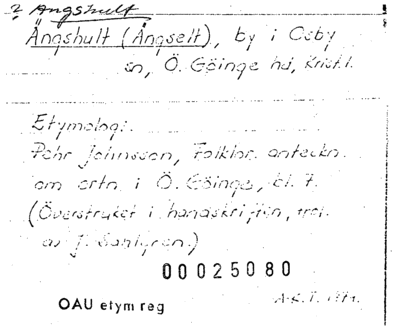 ? Ängshult
Ängshult (Ängselt), by i Osby
sn, Ö. Göinge hd, Krist l.
Etymologi.
Pehr Johnsson, Folklor. anteckn.
om ortn. i Ö. Göinge, bl. 7.
(Överstruket i handskriften, trol.
av J. Sahlgren.)
00025080
OAU etym reg